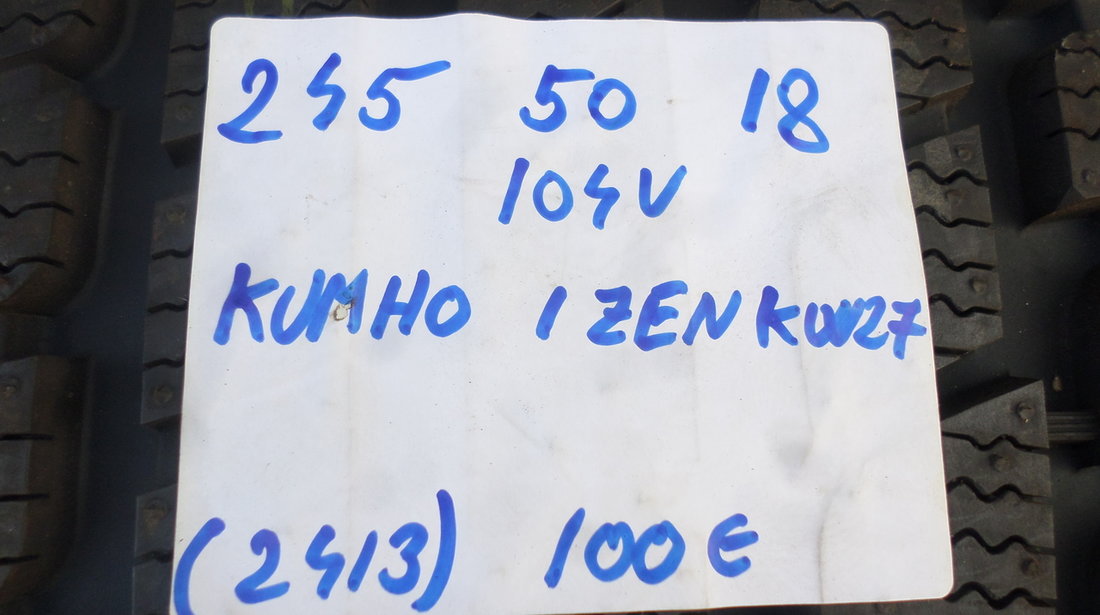 245 50 18
104V
KUMHO IZEN KW27
(2413) 100 €